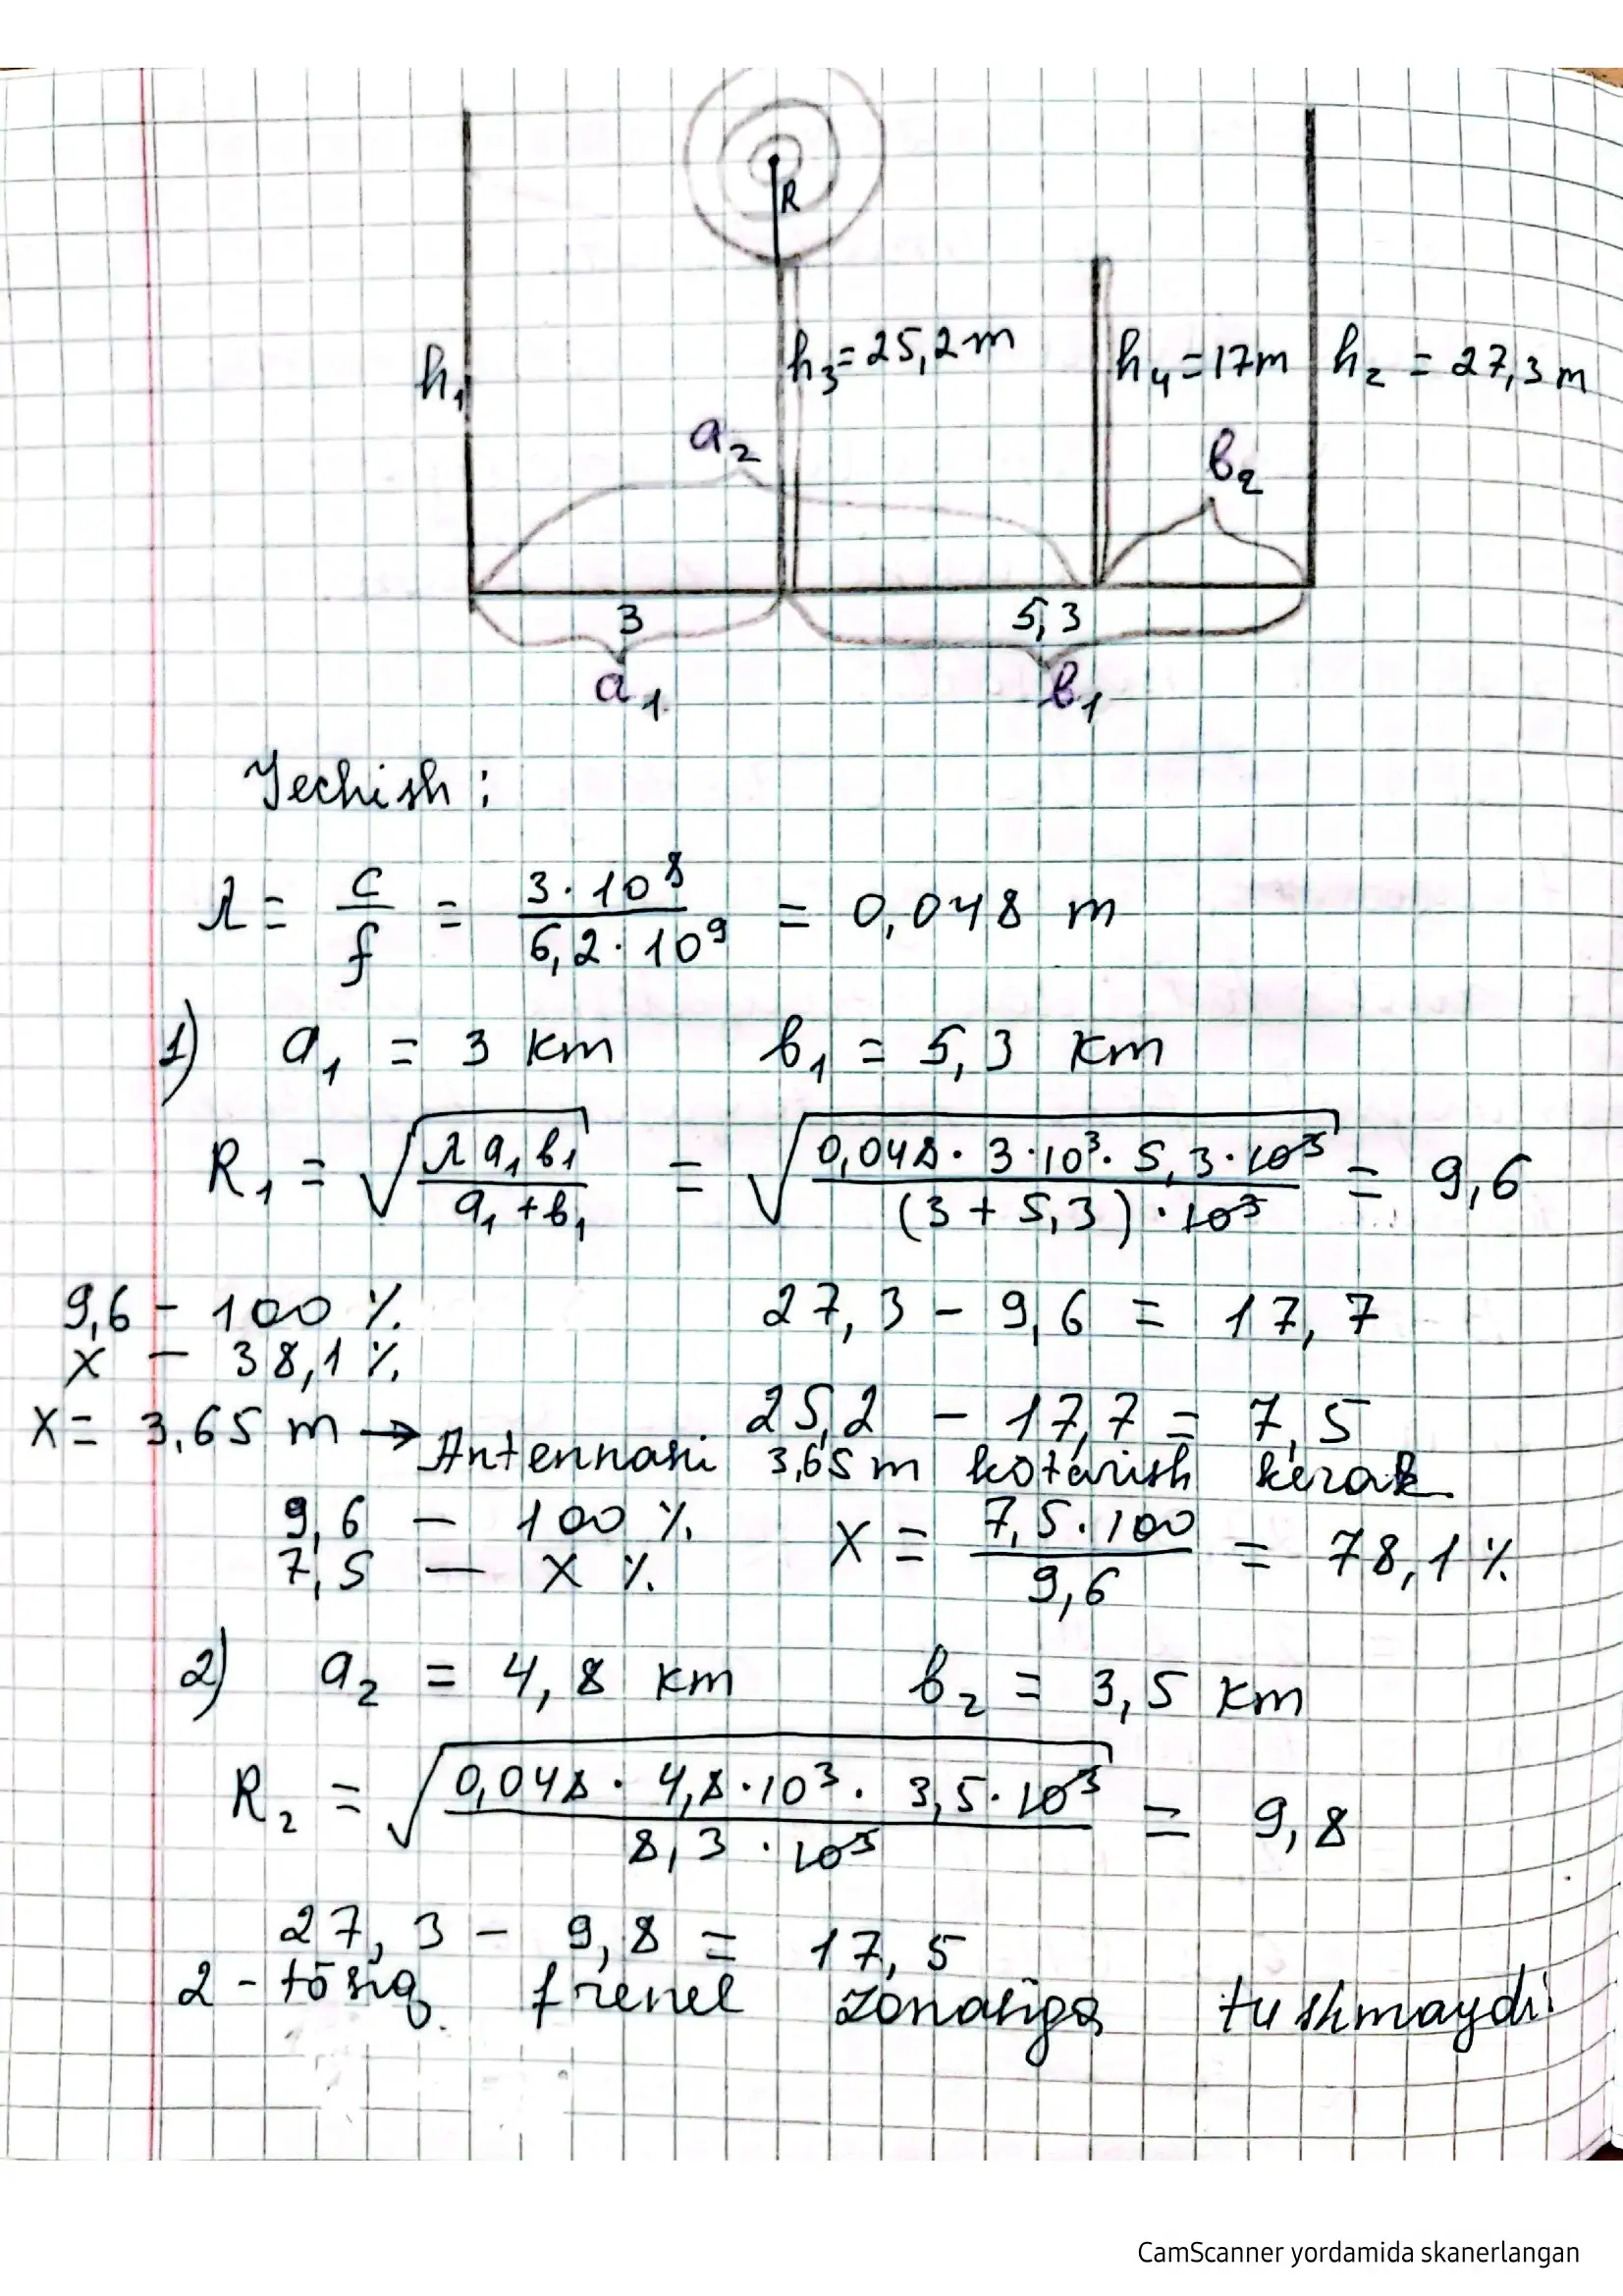 R
h₁
h₃=25,2m
h₄=17m
h₂ = 27,3m
a₂
b₂
3
5,3
a₁
b₁
Yechish:
λ = c/f = 3·10⁸/6,2·10⁹ = 0,048 m
1) a₁ = 3 km b₁ = 5,3 km
R₁ = √(λa₁b₁/a₁+b₁) = √(0,048·3·10³·5,3·10³/(3+5,3)·10³) = 9,6
9,6 - 100 % 27,3 - 9,6 = 17,7
x - 38,1 %
x = 3,65 m → 25,2 - 17,7 = 7,5
Antennani 3,65m kotarish kerak
9,6 - 100 % x = 7,5·100/9,6 = 78,1 %
7,5 — x %
2) a₂ = 4,8 km b₂ = 3,5 km
R₂ = √(0,048·4,8·10³·3,5·10³/8,3·10³) = 9,8
27,3 - 9,8 = 17,5
2-tōsiq frenel zonasiga tushmaydi
CamScanner yordamida skanerlangan